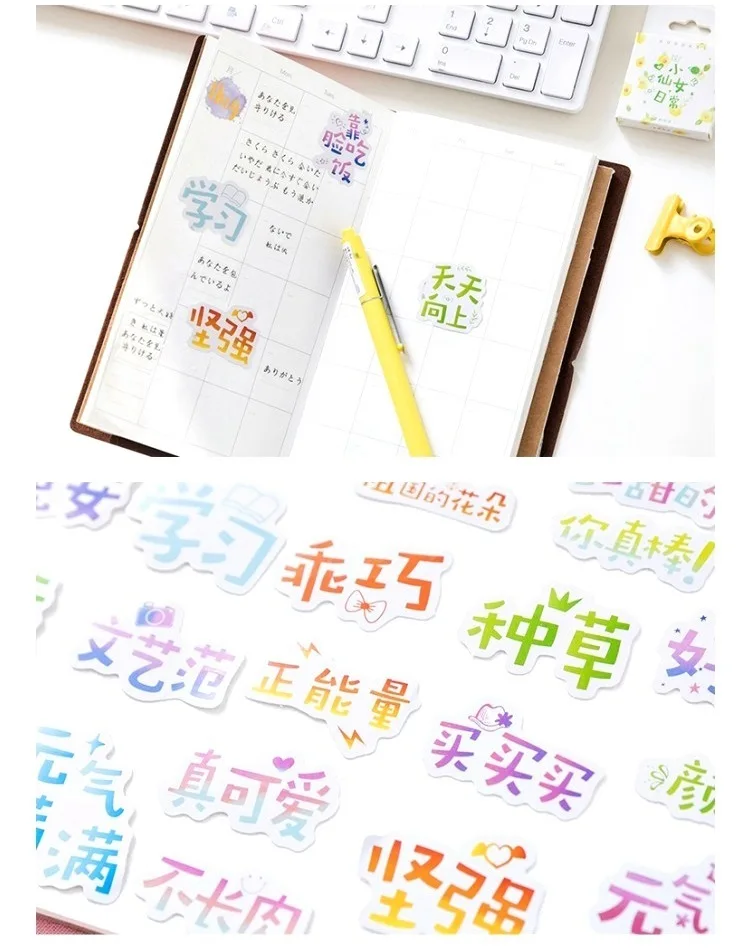 End
1
2
3
PgDn
Enter
0
Ins
Del
小
仙女
日常
Mon
あなたを見
守りける
靠
脸吃
饭
さくら さくら 会いた
いやだ 君に今すぐ会い
だいじょうぶ もう泣か
学习
ないで
私は火
あなたを包
んでいるよ
天天
向上
坚强
ずっと大好
き 私は星
あなたを見
守りける
ありがとう
学习
祖国的花朵
你真棒!
乖巧
种草
文艺范
正能量
买买买
元气
满
真可爱
颜
不长肉
坚强
元气